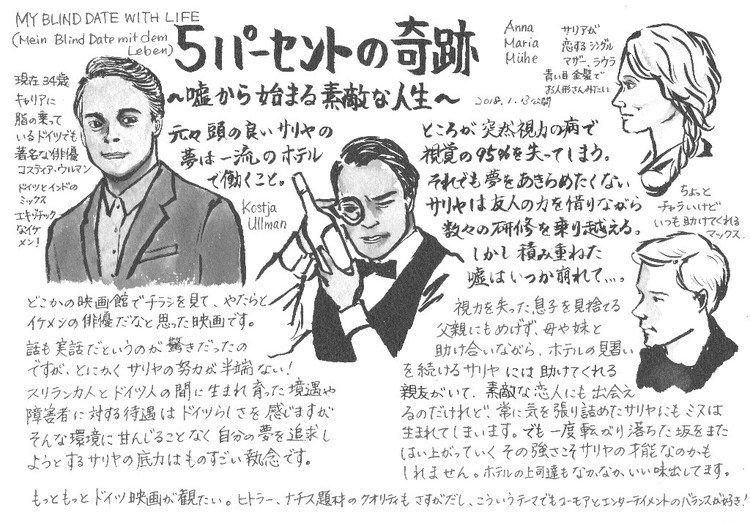 MY BLIND DATE WITH LIFE
(Mein Blind Date mit dem
Leben)
5パーセントの奇跡
〜嘘から始まる素敵な人生〜
2018.1.13公開
現在34歳
キャリアに
脂の乗って
いるドイツでも
著名な俳優
コスティア・ウルマン
ドイツとインドの
ミックス
エキゾチック
なイケ
メン!
元々頭の良いサリヤの
夢は一流のホテル
で働くこと。
Kostja
Ullman
ところが突然視力の病で
視覚の95%を失ってしまう。
それでも夢をあきらめたくない
サリヤは友人の力を借りながら
数々の研修を乗り越える。
しかし積み重ねた
嘘はいつか崩れて...。
Anna
Maria
Mühe
サリヤが
恋するシングル
マザー、ラウラ
青い目金髪で
お人形さんみたい
ちょっと
チャラいけど
いつも助けてくれる
マックス
どこかの映画館でチラシを見て、やたらと
イケメンの俳優だなと思った映画です。
話も実話だというのが驚きだったの
ですが、とにかくサリヤの努力が半端ない!
スリランカ人とドイツ人の間に生まれ育った境遇や
障害者に対する待遇はドイツらしさを感じますが
そんな環境に甘んじることなく自分の夢を追求し
ようとするサリヤの底力はものすごい執念です。
視力を失った息子を見捨てる
父親にもめげず、母や妹と
助け合いながら、ホテルの見習い
を続けるサリヤには助けてくれる
親友がいて、素敵な恋人にも出会え
るのだけれど、常に気を張り詰めたサリヤにもミスは
生まれてしまいます。でも一度転がり落ちた坂をまた
はい上がっていくその強さこそサリヤの才能なのかも
しれません。ホテルの上司達もなかなかいい味出してます。
もっともっとドイツ映画が観たい。ヒトラー、ナチス題材のクオリティもさすがだし、こういうテーマでもユーモアとエンターテイメントのバランスが好き!